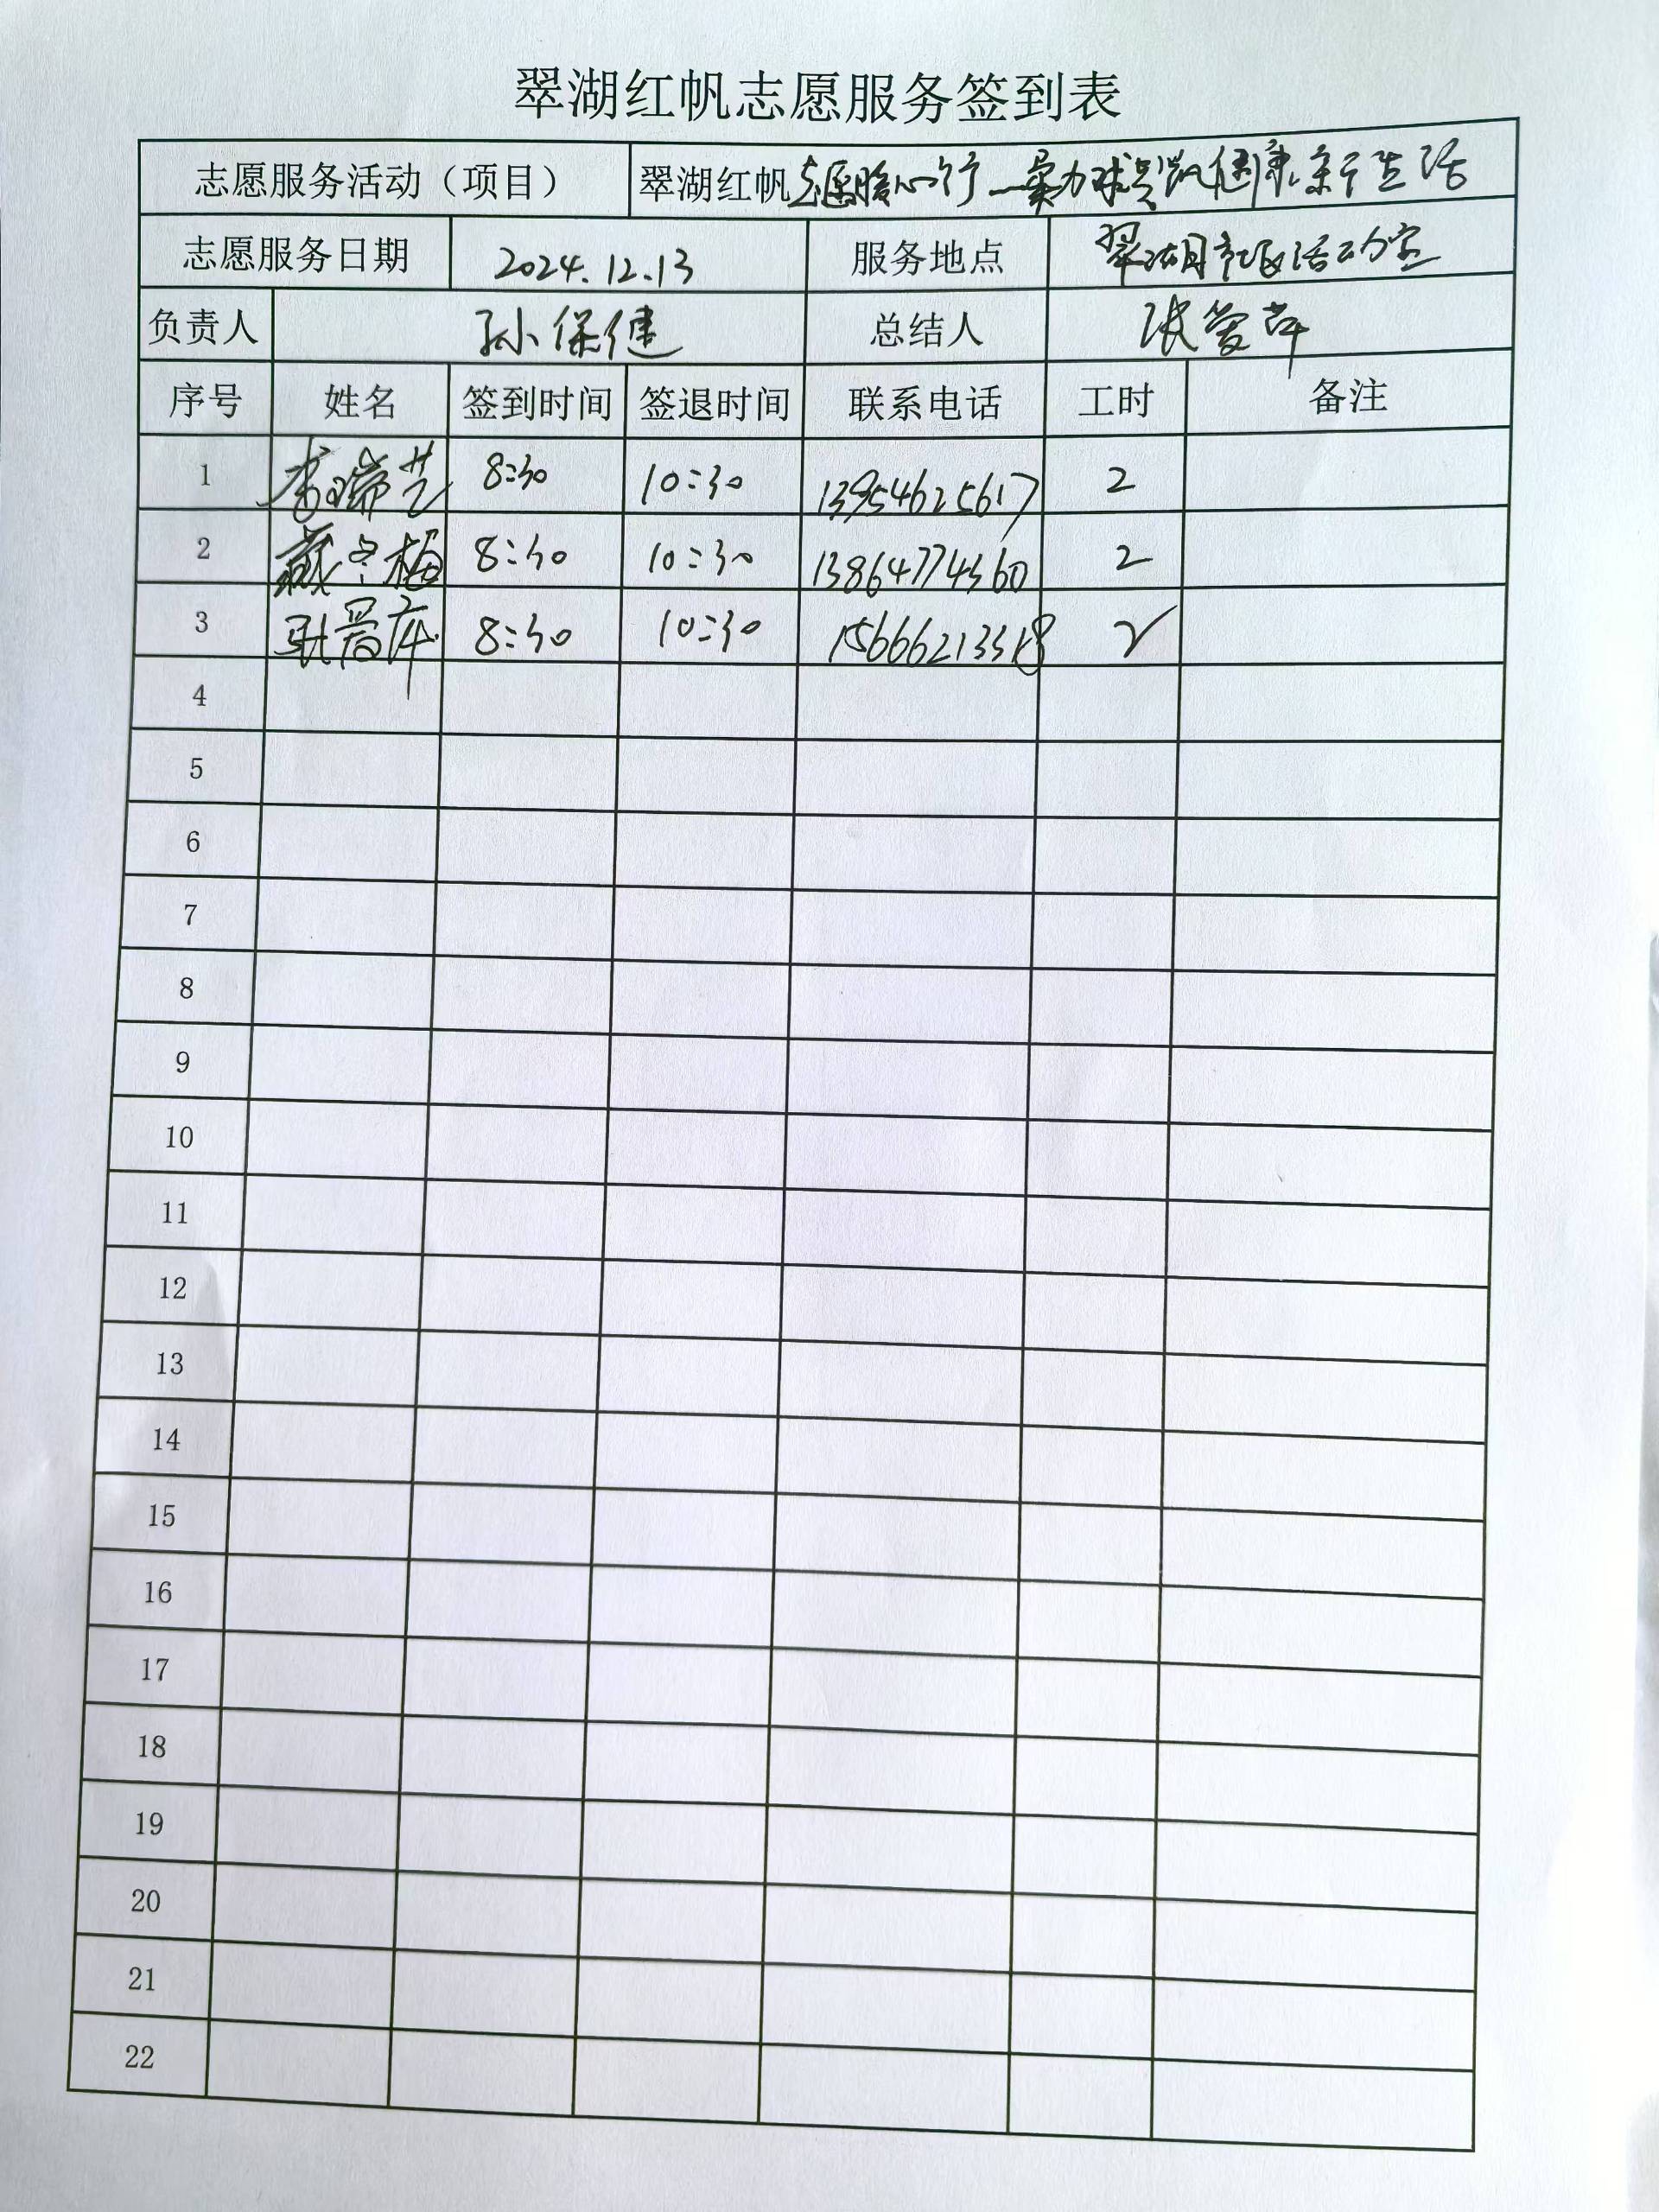 翠湖红帆志愿服务签到表
志愿服务活动（项目） 翠湖红帆志愿暖心行 健康新生活
志愿服务日期 2024.12.13 服务地点 翠湖市民活动室
负责人 孙保健 总结人
序号 姓名 签到时间 签退时间 联系电话 工时 备注
1 李瑞芝 8:30 10:30 13954625617 2
2 8:30 10:30 13864774360 2
3 8:30 10:30 15666213318 2
4
5
6
7
8
9
10
11
12
13
14
15
16
17
18
19
20
21
22